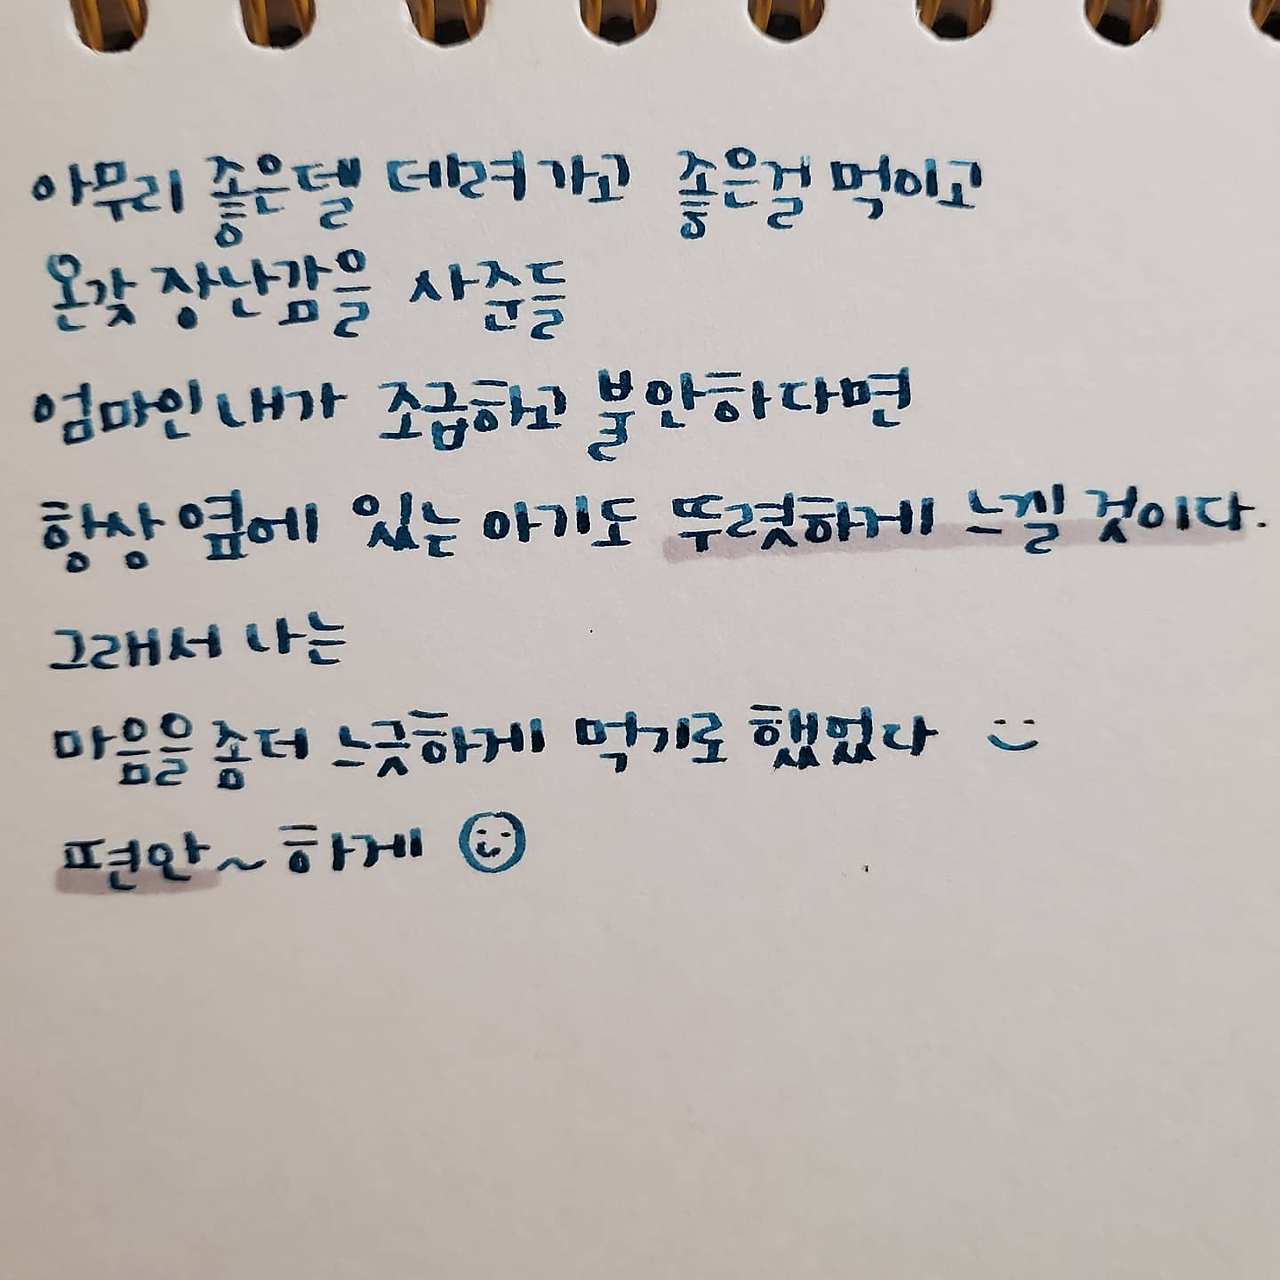 아무리 좋은델 데려가고 좋은걸 먹이고
온갖 장난감을 사준들
엄마인 내가 조급하고 불안하다면
항상 옆에 있는 아기도 뚜렷하게 느낄 것이다.
그래서 나는
마음을 좀더 느긋하게 먹기로 했었다
편안~하게